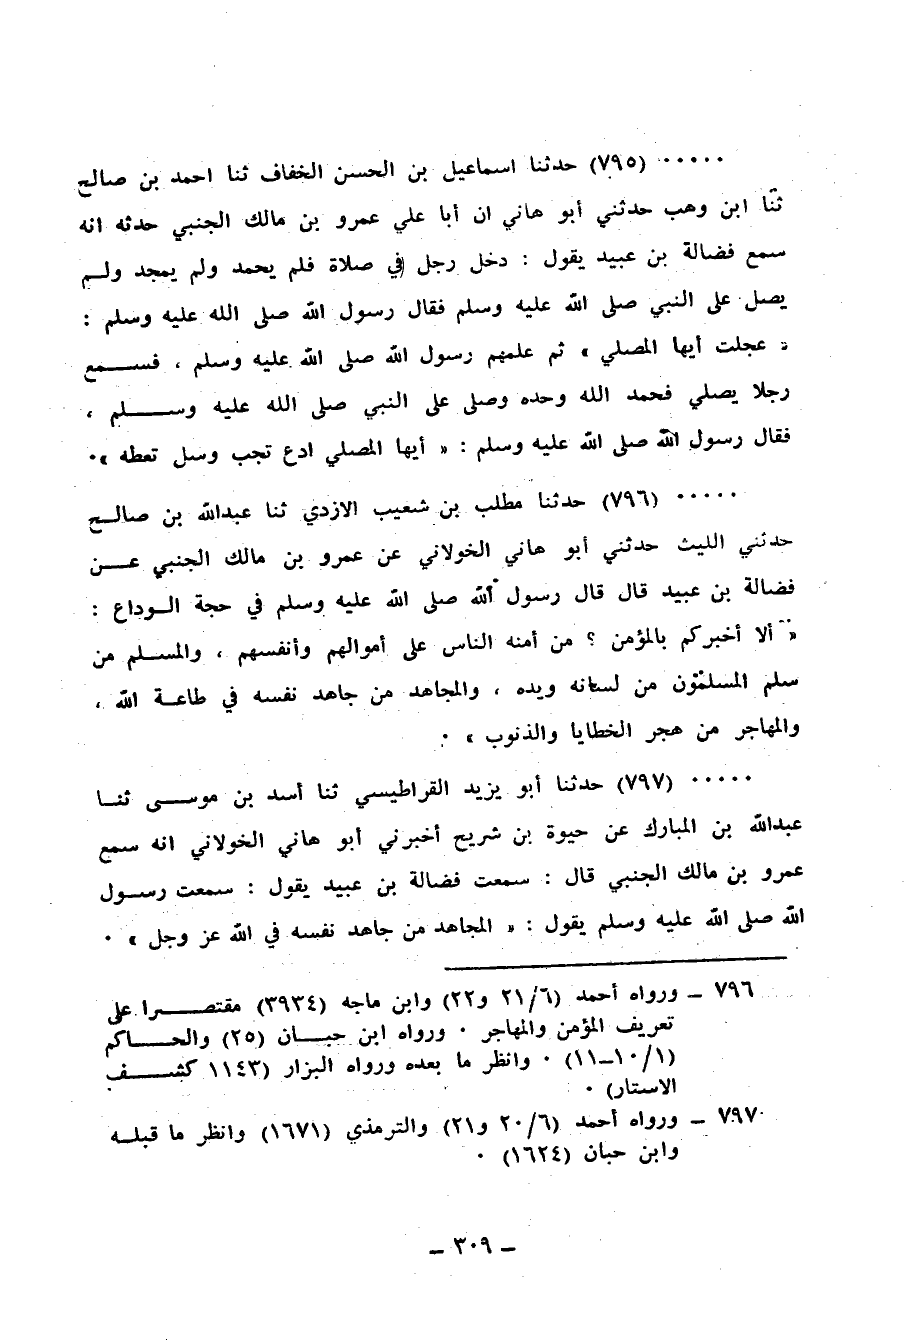 ..... (٧٩٥) حدثنا اسماعيل بن الحسن الخفاف ثنا احمد بن صالح
ثنا ابن وهب حدثني أبو هاني ان أبا علي عمرو بن مالك الجنبي حدثه انه
سمع فضالة بن عبيد يقول : دخل رجل في صلاة فلم يحمد ولم يمجد ولم
يصل على النبي صلى الله عليه وسلم فقال رسول الله صلى الله عليه وسلم :
« عجلت أيها المصلي » ثم علمهم رسول الله صلى الله عليه وسلم ، فسمع
رجلا يصلي فحمد الله وحده وصلى على النبي صلى الله عليه وسلم ،
فقال رسول الله صلى الله عليه وسلم : « أيها المصلي ادع تجب وسل تعطه » .
..... (٧٩٦) حدثنا مطلب بن شعيب الازدي ثنا عبدالله بن صالح
حدثني الليث حدثني أبو هاني الخولاني عن عمرو بن مالك الجنبي عن
فضالة بن عبيد قال قال رسول الله صلى الله عليه وسلم في حجة الوداع :
« ألا أخبركم بالمؤمن ؟ من أمنه الناس على أموالهم وأنفسهم ، والمسلم من
سلم المسلمون من لسانه ويده ، والمجاهد من جاهد نفسه في طاعة الله ،
والمهاجر من هجر الخطايا والذنوب » .
..... (٧٩٧) حدثنا أبو يزيد القراطيسي ثنا أسد بن موسى ثنا
عبدالله بن المبارك عن حيوة بن شريح أخبرني أبو هاني الخولاني انه سمع
عمرو بن مالك الجنبي قال : سمعت فضالة بن عبيد يقول : سمعت رسول
الله صلى الله عليه وسلم يقول : « المجاهد من جاهد نفسه في الله عز وجل » .
٧٩٦ ـ ورواه أحمد (٢١/٦ و٢٢) وابن ماجه (٣٩٣٤) مقتصرا على
تعريف المؤمن والمهاجر . ورواه ابن حبان (٢٥) والحاكم
(١٠/١ـ١١) . وانظر ما بعده ورواه البزار (١١٤٣ كشف
الاستار) .
٧٩٧ ـ ورواه أحمد (٢٠/٦ و٢١) والترمذي (١٦٧١) وانظر ما قبله
وابن حبان (١٦٢٤) .
ـ ٣٠٩ ـ